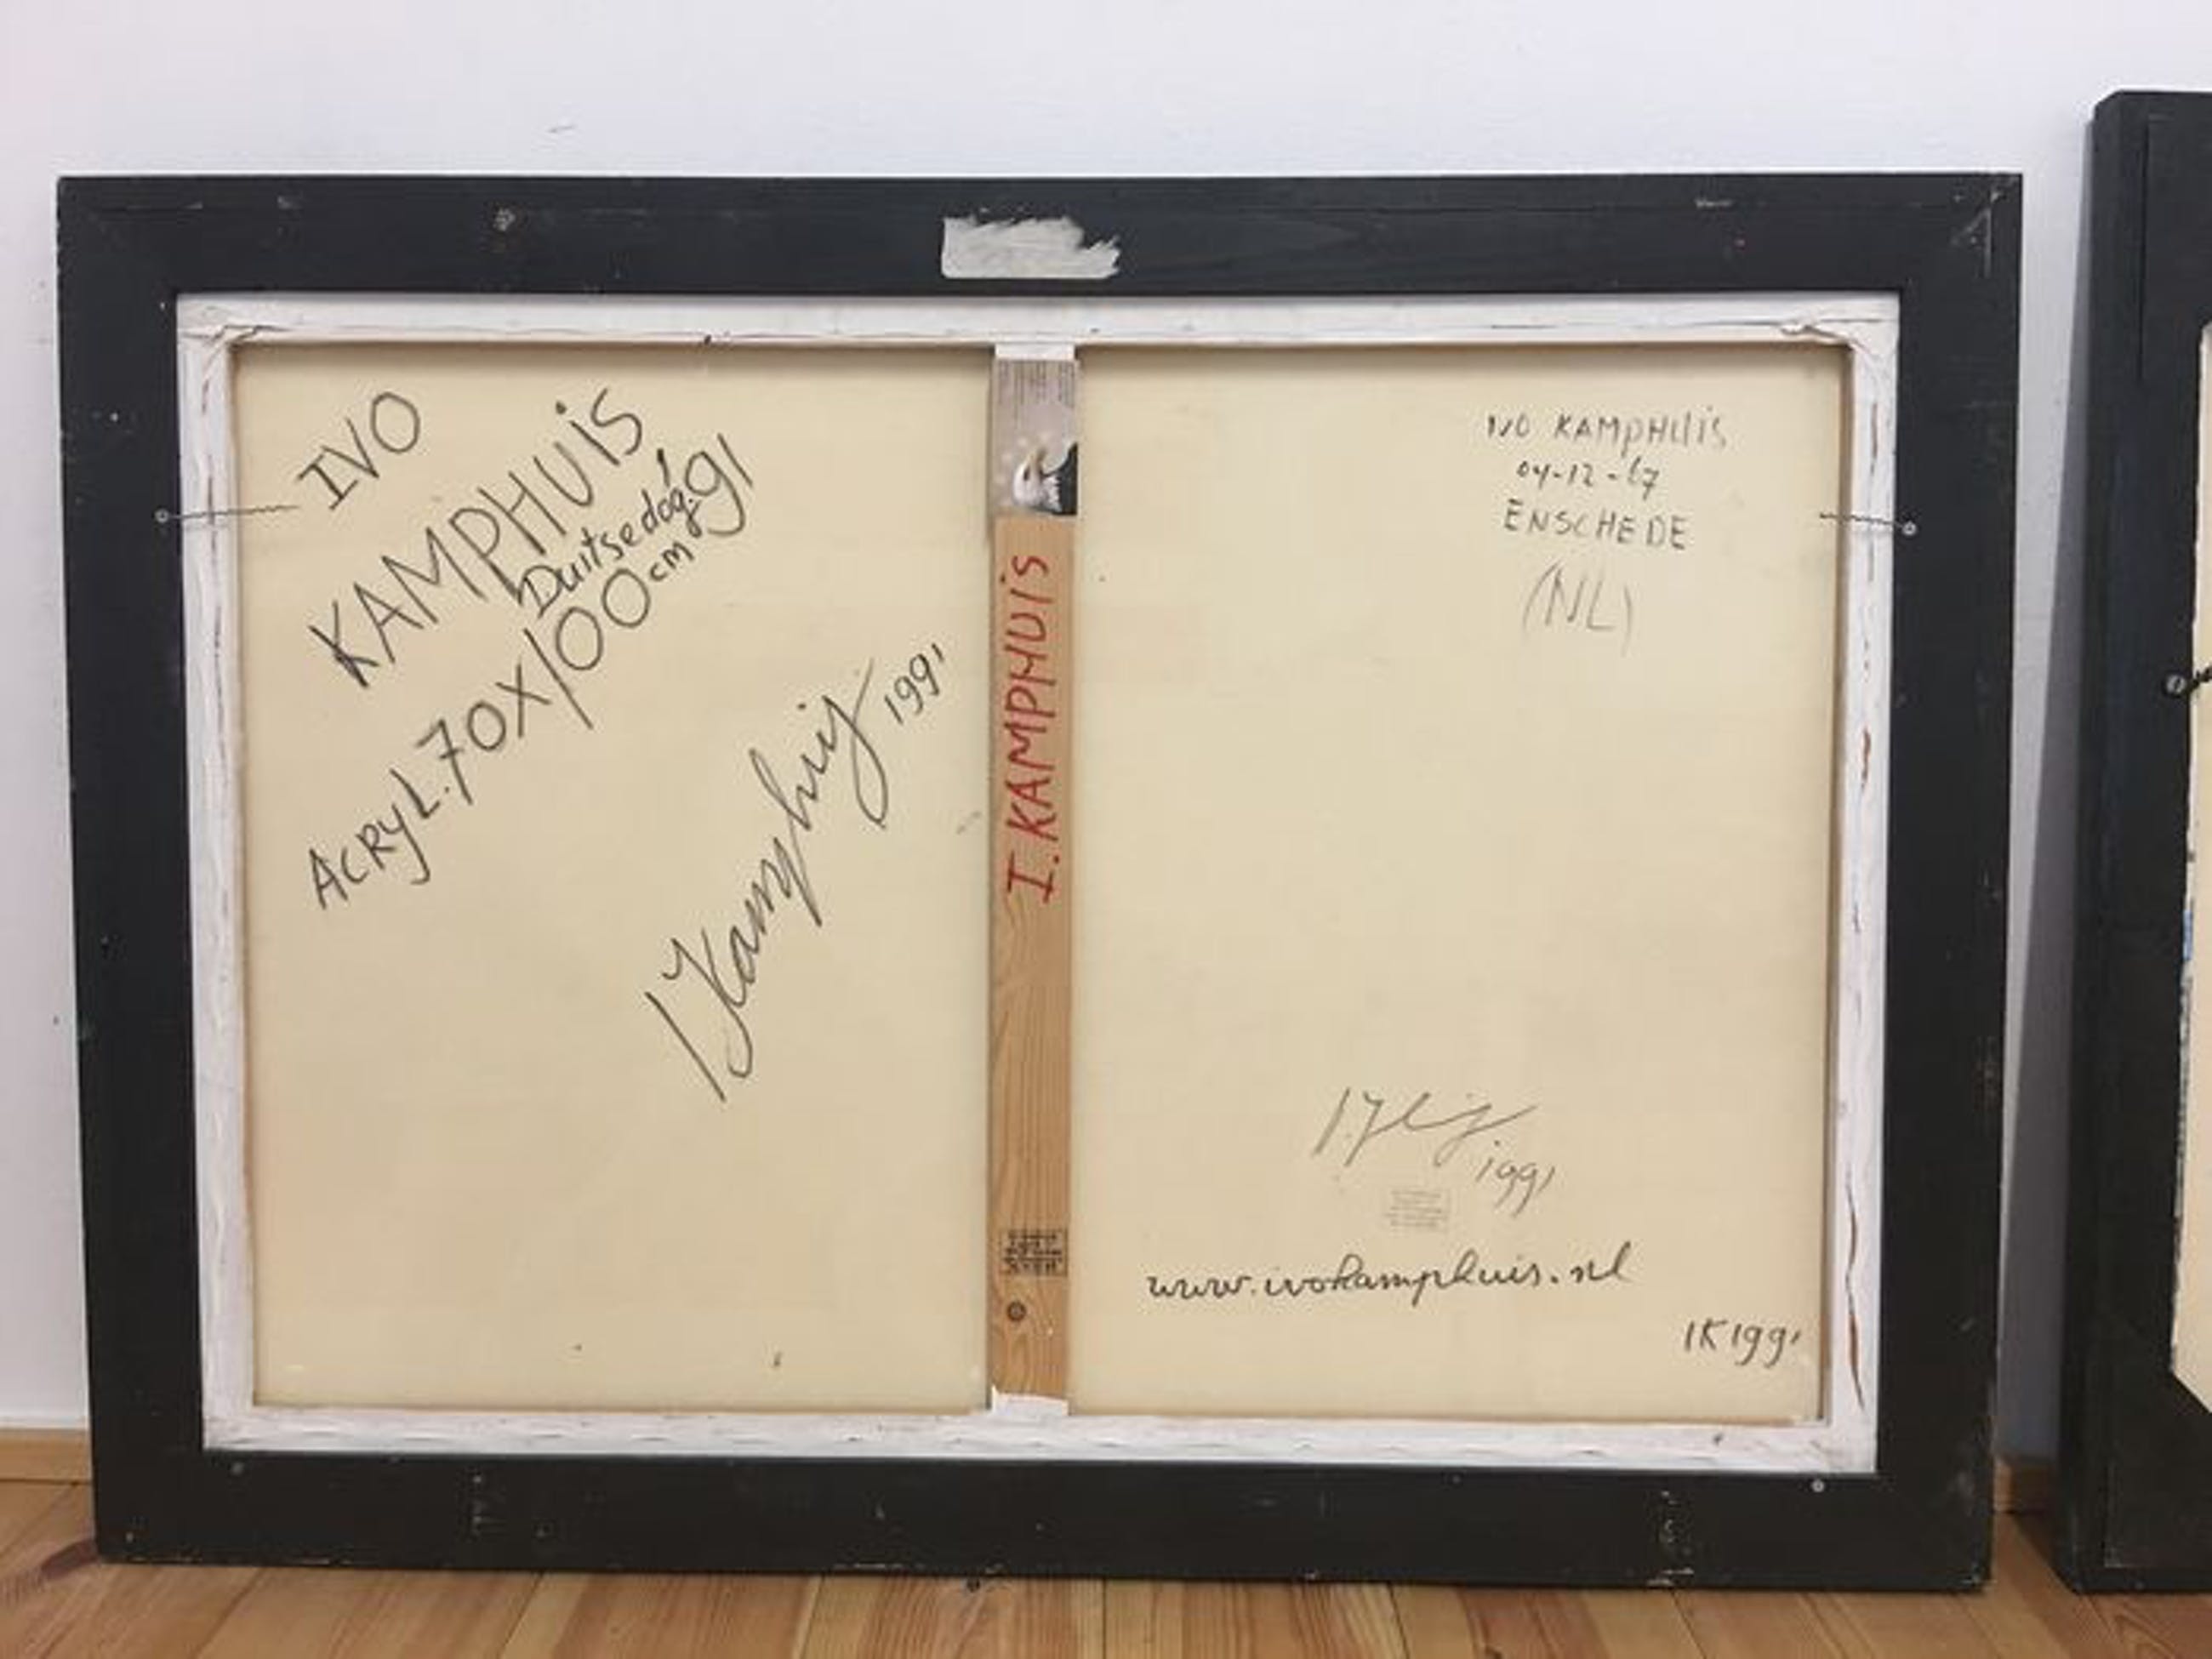 IVO
KAMPHUIS
Duitsedog. '91
ACRYL. 70X100cm
I Kamphuis 1991
I. KAMPHUIS
IVO KAMPHUIS
04-12-67
ENSCHEDE
(NL)
1991
www.ivokamphuis.nl
IK 1991